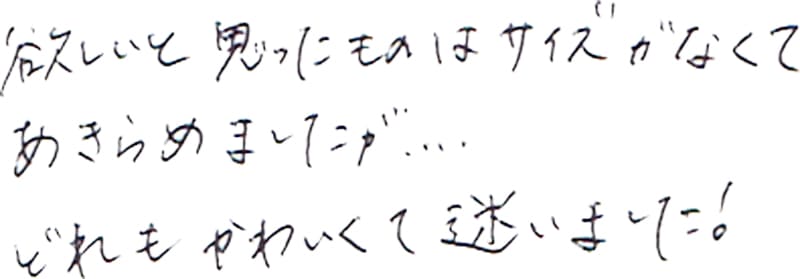 欲しいと思ったものはサイズがなくて
あきらめましたが....
どれもかわいくて迷いました!